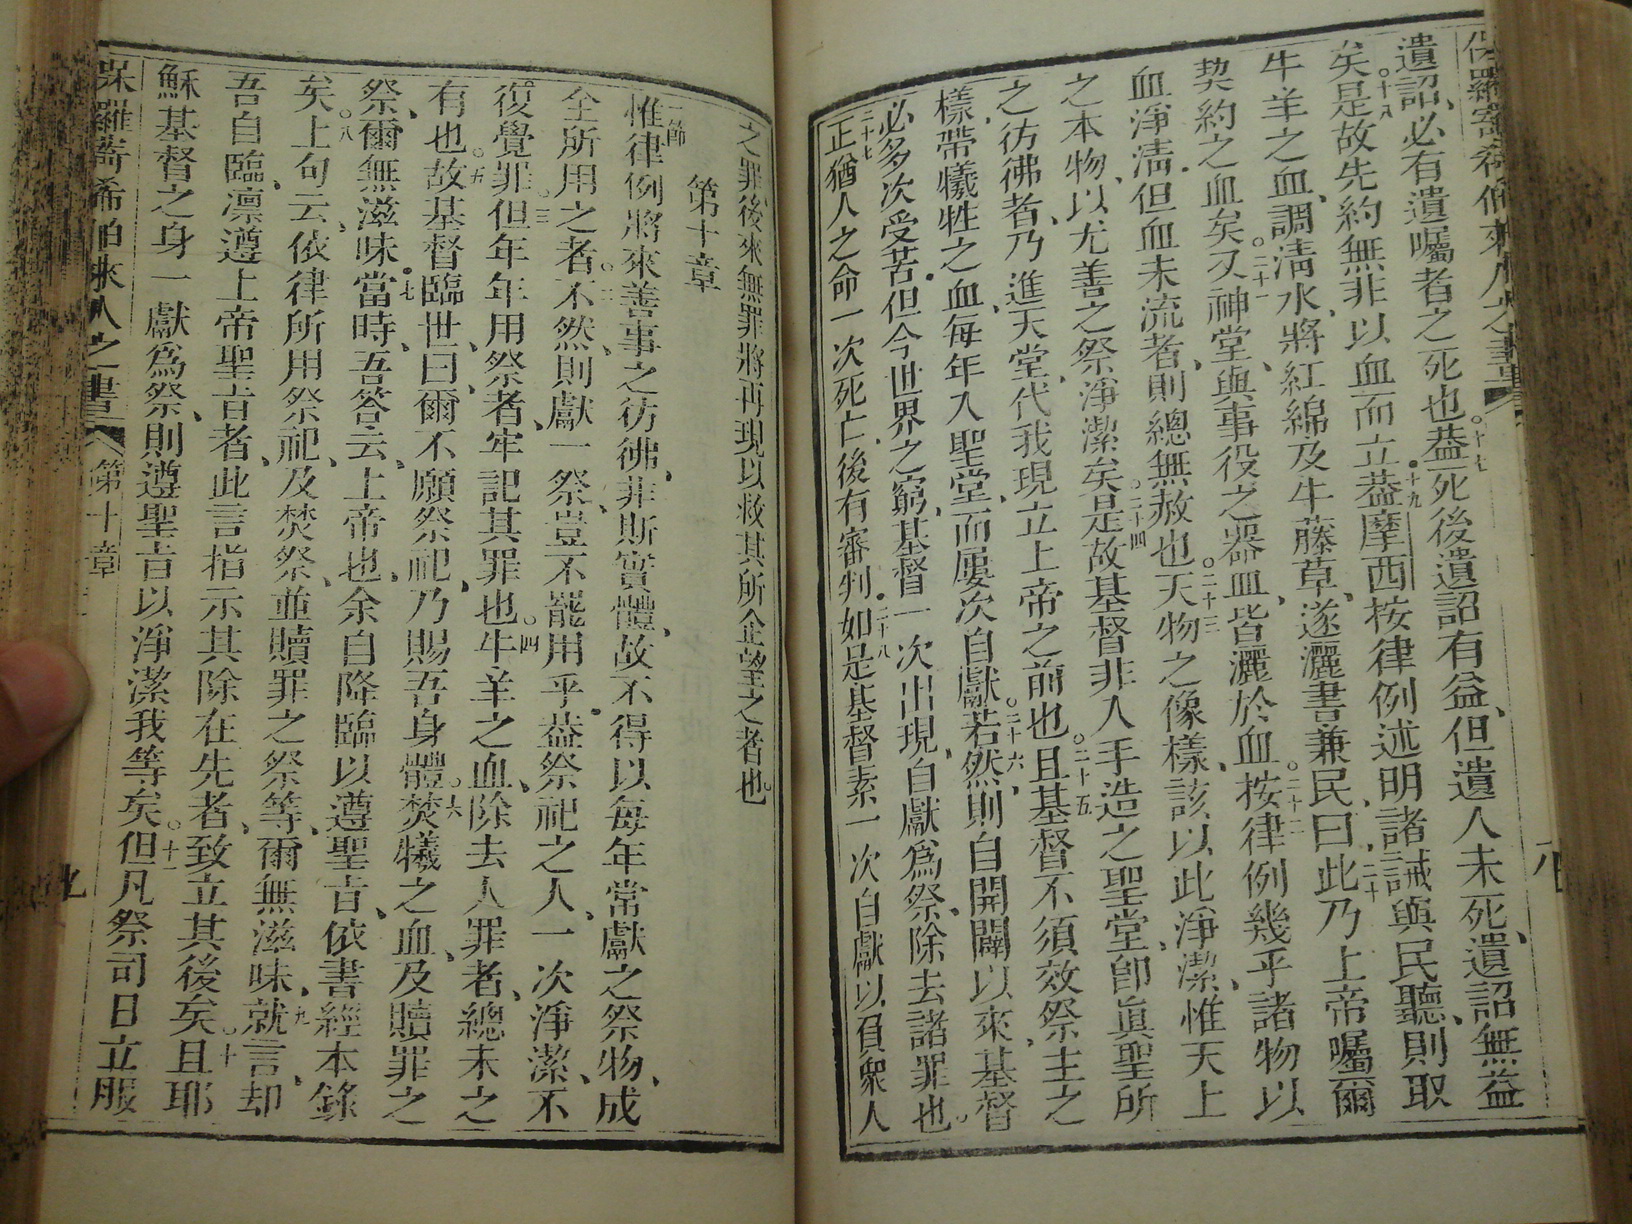 保羅寄希伯來人之書
遺詔、必有遺囑者之死也。十七葢死後遺詔有益、但遺人未死、遺詔無益
矣。十八是故先約無非以血而立。十九葢摩西按律例述明諸誡與民聽、則取
牛羊之血、調淸水、將紅綿及牛藤草、遂灑書兼民、曰、二十此乃上帝囑爾
契約之血矣。二十一又神堂、與事役之器皿、皆灑於血。二十二按律例幾乎諸物以
血淨淸、但血未流者、則總無赦也。二十三天物之像樣、該以此淨潔、惟天上
之本物、以尤善之祭淨潔矣。二十四是故基督非人手造之聖堂、卽眞聖所
之彷彿者、乃進天堂、代我現立上帝之前也。二十五且基督不須效祭主之
樣、帶犧牲之血、每年入聖堂、而屢次自獻。二十六若然、則自開闢以來、基督
必多次受苦、但今世界之窮、基督一次出現、自獻爲祭、除去諸罪也。
二十七正猶人之命一次死亡、後有審判。二十八如是基督素一次自獻以負衆人
八
之罪、後來無罪將再現以救其所企望之者也。
第十章
一節惟律例將來善事之彷彿、非斯實體、故不得以每年常獻之祭物、成
全所用之者。二不然、則獻一祭、豈不罷用乎。葢祭祀之人、一次淨潔、不
復覺罪。三但年年用祭者、牢記其罪也。四牛羊之血、除去人罪者、總未之
有也。五故基督臨世、曰、爾不願祭祀、乃賜吾身體。六焚犧之血、及贖罪之
祭、爾無滋味。七當時、吾答云、上帝也、余自降臨以遵聖旨、依書經本錄
矣。八上句云、依律所用祭祀、及焚祭、並贖罪之祭等、爾無滋味、九就言、却
吾自臨、凛遵上帝聖旨者、此言指示其除在先者、致立其後矣。十且耶
穌基督之身一獻爲祭、則遵聖旨以淨潔我等矣。十一但凡祭司日立服
保羅寄希伯來人之書
第十章
九